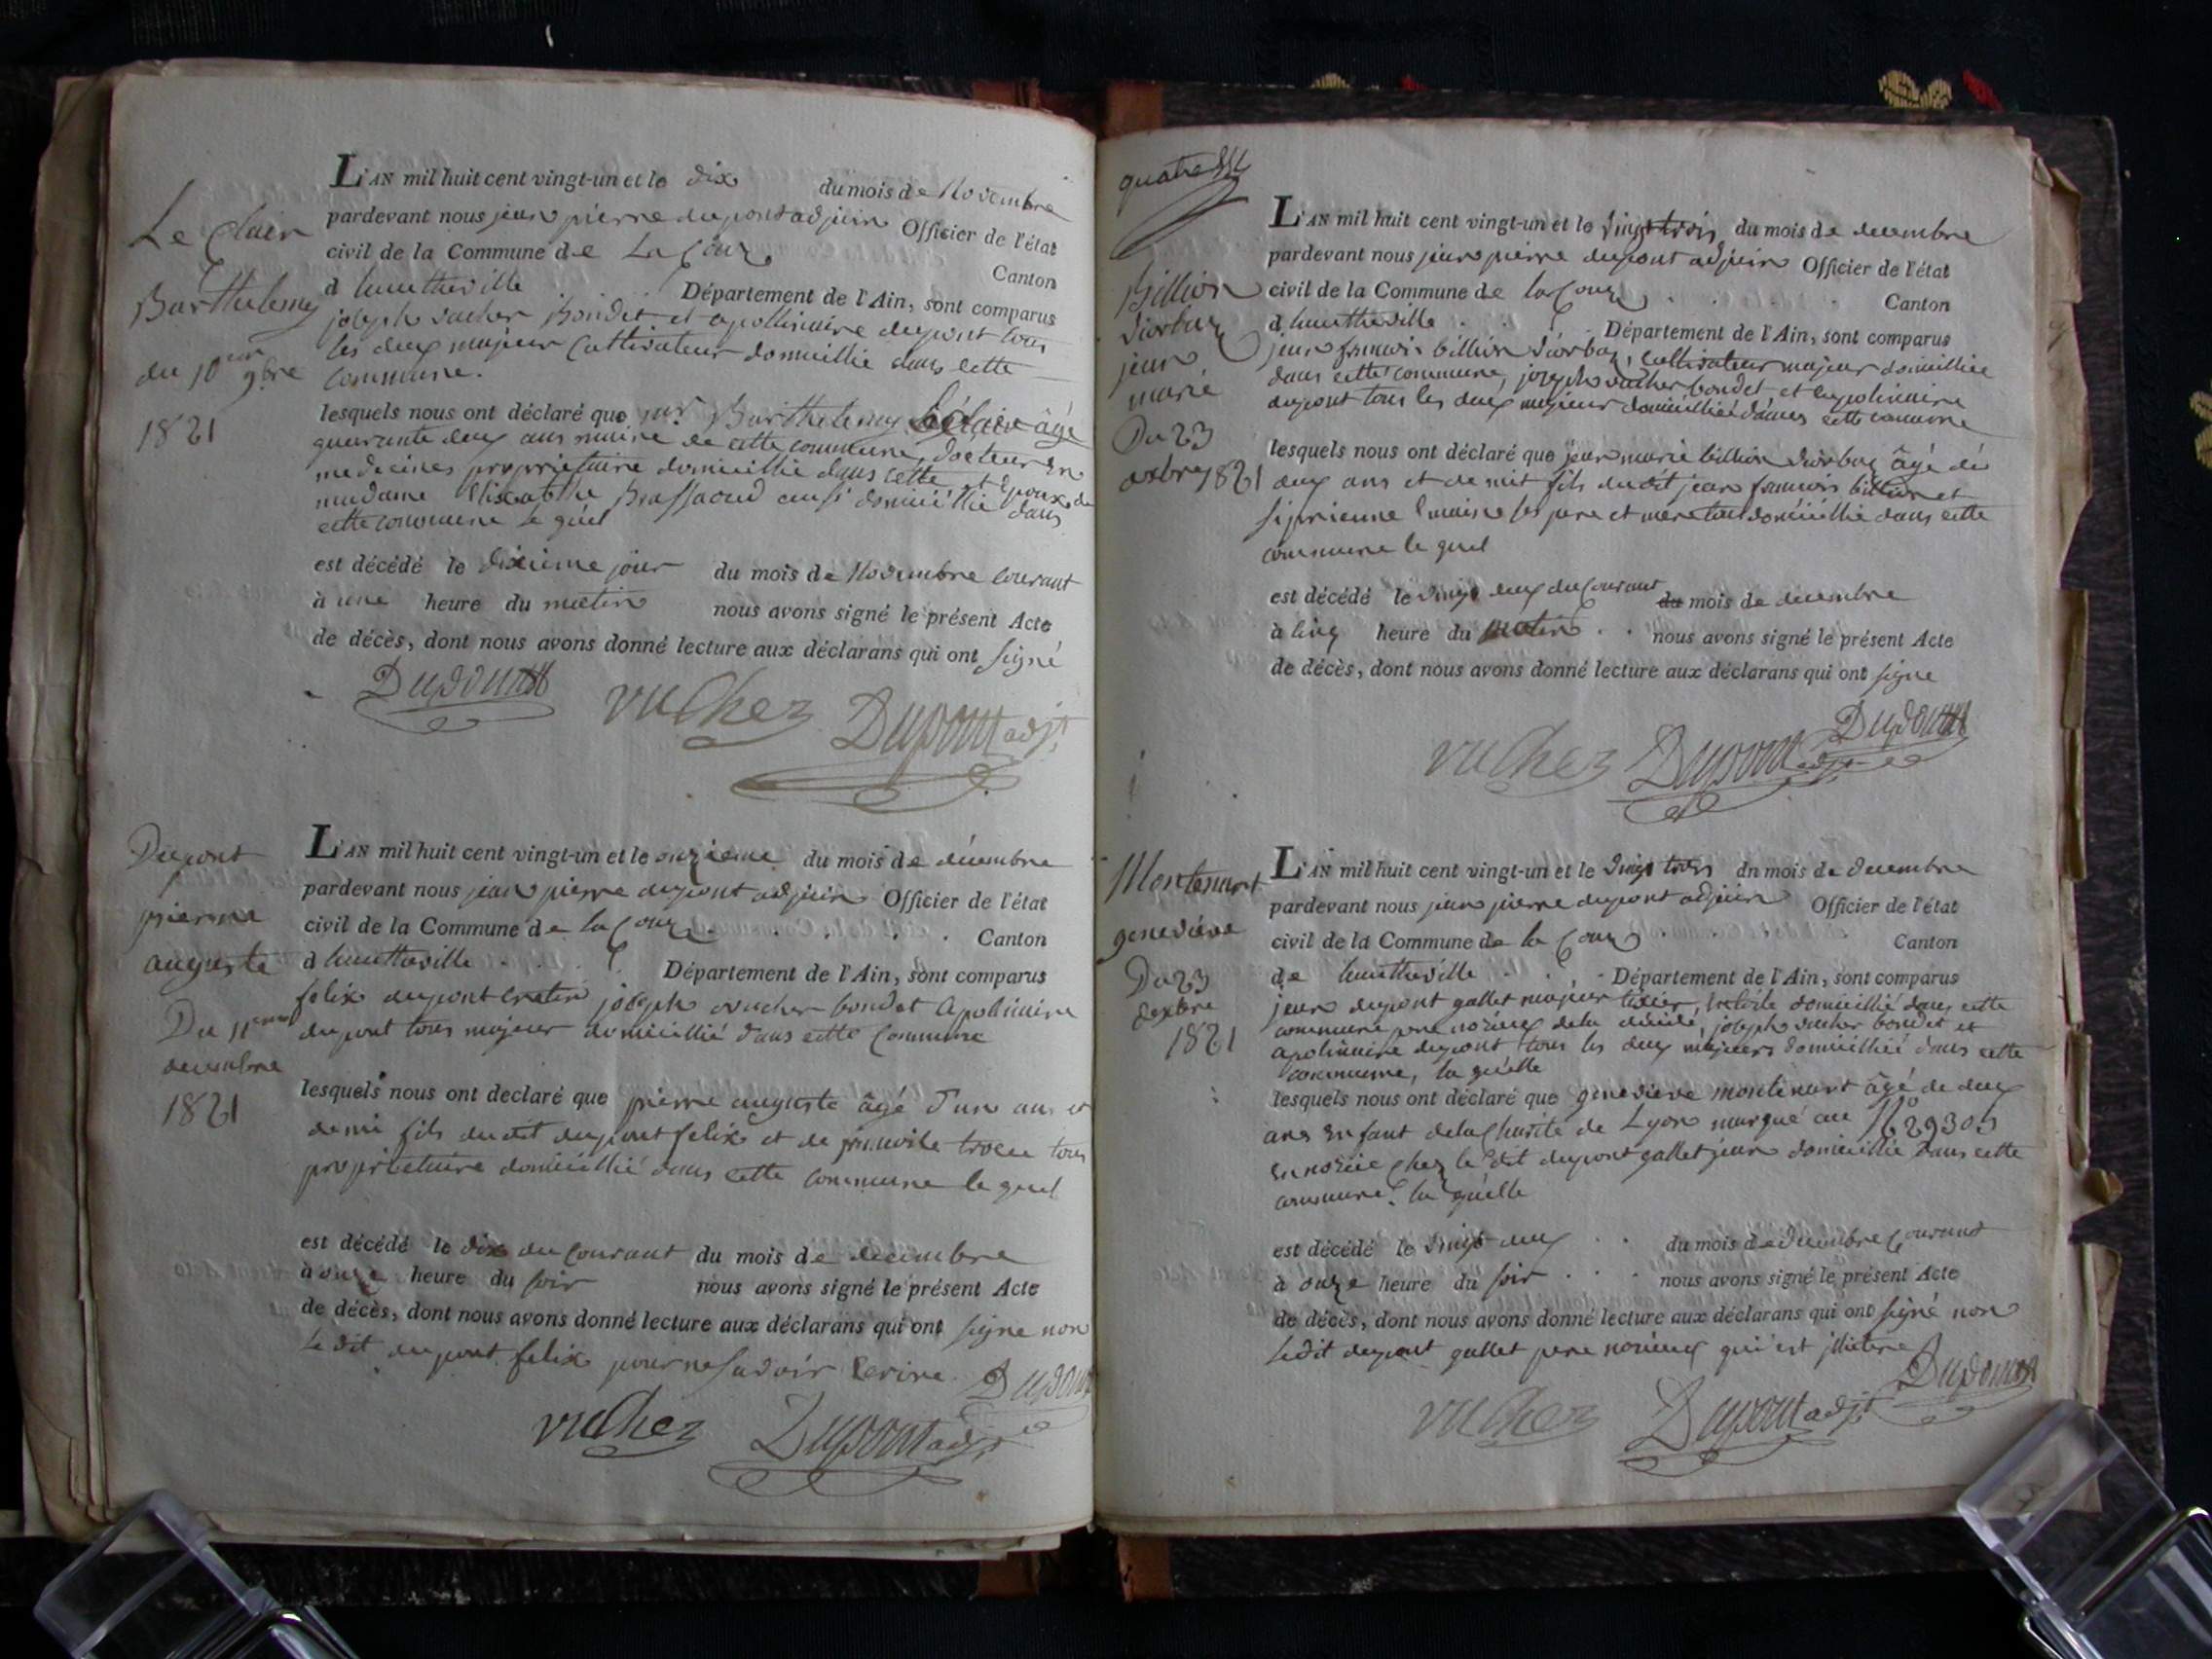 Le Clair
Barthelemy
du 10 9bre
1821
L'AN mil huit cent vingt-un et le dix du mois de Novembre
pardevant nous jean pierre dupont adjoin Officier de l'état
civil de la Commune de La Coux Canton
d hautheville Département de l'Ain, sont comparus
joseph vucher Bondet et apollinaire dupont tous
les deux majeur Cultivateur domicillié dans cette
commune.
lesquels nous ont déclaré que mr Barthelemy Leclair âgé
quarante deux ans maire de cette commune, docteur en
medecines propriétaire domicillié dans cette et Epoux de
madame aussi domicillié dans
cette commune le quel
est décédé le dixieme jour du mois de Novembre courant
à une heure du matin nous avons signé le présent Acte
de décès, dont nous avons donné lecture aux déclarans qui ont signé
Dupont vuChez Dupont adjt
Dupont
pierre
auguste
Du 11eme
decembre
1821
L'AN mil huit cent vingt-un et le onzieme du mois de décembre
pardevant nous jean pierre dupont adjoin Officier de l'état
civil de la Commune de la Coux Canton
d hautteville Département de l'Ain, sont comparus
felix dupont joseph vucher bondet Apolinaire
dupont tous majeur domicillié dans cette Commune
lesquels nous ont declaré que pierre auguste âgé d'un an et
demi fils du dit dupont felix et de tous
propriétaire domicillié dans cette commune le quel
est décédé le dix du Courant du mois de decembre
à onze heure du soir nous avons signé le présent Acte
de décès, dont nous avons donné lecture aux déclarans qui ont signe non
le dit dupont felix pour ne savoir Ecrire. Dupont
vuChez Dupont adjt
quatre
Billion
diorbaz
jean
marie
Du 23
1821
L'AN mil huit cent vingt-un et le vingt trois du mois de decembre
pardevant nous jean pierre dupont adjoin Officier de l'état
civil de la Commune de la Coux Canton
d hautheville Département de l'Ain, sont comparus
jean francois billion diorbaz, cultivateur majeur domicillié
dans cette commune, joseph vucher bondet et apolinaire
dupont tous les deux majeur domicillié dans cette commune
lesquels nous ont déclaré que jean marie billion diorbaz âgé de
deux ans et demit fils du dit jean francois billion et
ses pere et mere tous domicillié dans cette
commune le quel
est décédé le vingt deux du Courant du mois de decembre
à cinq heure du matin nous avons signé le présent Acte
de décès, dont nous avons donné lecture aux déclarans qui ont signe
vuChez Dupont adjt Dupont
Montenart
genevieve
Du 23
dexbre
1821
L'AN mil huit cent vingt-un et le vingt trois du mois de decembre
pardevant nous jean pierre dupont adjoin Officier de l'état
civil de la Commune de la Coux Canton
de hautheville Département de l'Ain, sont comparus
jean dupont gallet majeur domicillié dans cette
commune pere de la décédé, joseph vucher bondet et
apolinaire dupont tous les deux majeurs domicillié dans cette
commune, la quelle
lesquels nous ont déclaré que genevieve montenart âgé de deux
ans Enfant de la Charité de Lyon marqué au No 29305
chez le dit dupont gallet jean domicillié dans cette
commune. la quelle
est décédé le vingt deux du mois de decembre Courant
à onze heure du soir nous avons signé le présent Acte
de décès, dont nous avons donné lecture aux déclarans qui ont signé non
ledit dupont gallet pere qui est
vuChez Dupont adjt Dupont